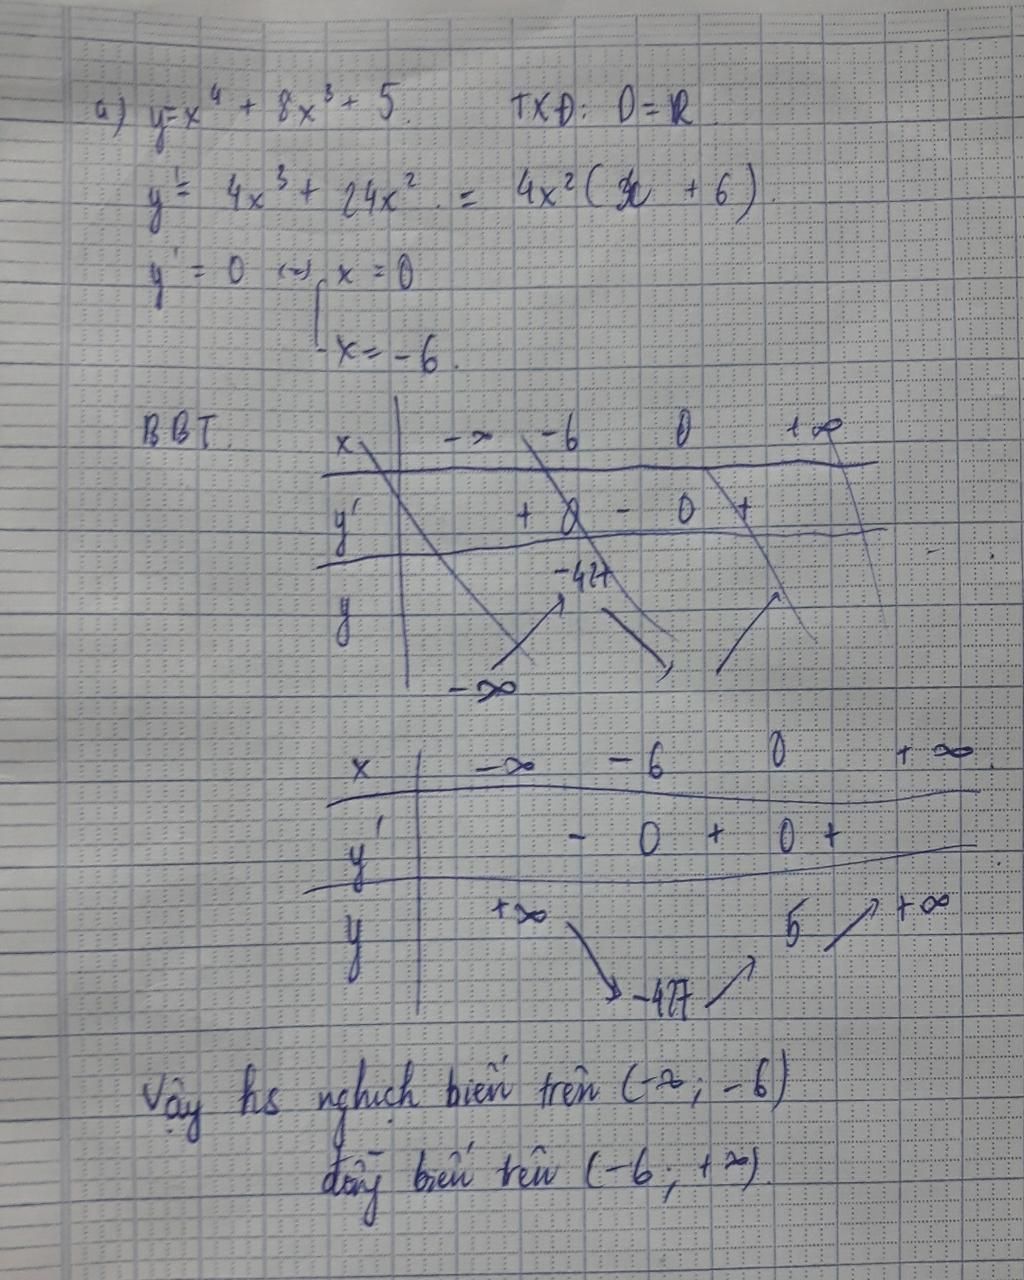 a) y = x⁴ + 8x³ + 5. TXĐ: D = R
y' = 4x³ + 24x². = 4x² (x + 6).
y' = 0 (=) x = 0
x = -6.
BBT. x -∞ -6 0 +∞
y' + 0 - 0 +
-427
y
-∞
x -∞ -6 0 +∞
y' - 0 + 0 +
y +∞ 5 +∞
-427
Vậy hs nghịch biến trên (-∞; -6)
đồng biến trên (-6; +∞).